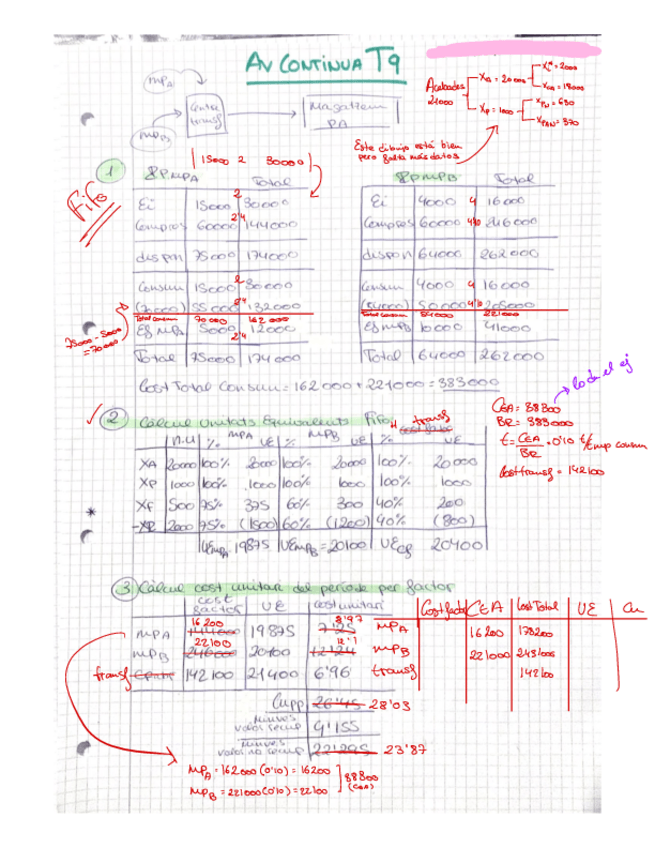 AV CONTINUA T9
MPA
MPB
Centre transf
Magatzem PA
Acabades 21000
XA = 20000
= 2000
= 18000
XP = 1000
= 630
= 370
Este dibujo está bien
pero falta más datos
15000 2 30000
FIFO
1
FPMPA Total
Ei 15000 2 30000
Compres 60000 2'4 144000
dispon 75000 174000
Consum 15000 2 30000
(70000) 55000 2'4 132000
Total consum 70000 162000
Ef MPA 5000 2'4 12000
Total 75000 174000
75000 - 5000
= 70000
FPMPB Total
Ei 4000 4 16000
Compres 60000 4'10 246000
dispon 64000 262000
Consum 4000 4 16000
(54000) 50000 4'10 205000
Total consum 54000 221000
Ef MPB 10000 41000
Total 64000 262000
Cost Total Consum = 162000 + 221000 = 383000
lo de el ej
CEA = 38300
BR = 383000
t = CEA / BR = 0'10 €/€mp consum
Cost transf = 142100
2 Càlcul Unitats Equivalents FIFO
transf
n.u % MPA UE % MPB UE % UE
XA 20000 100% 20000 100% 20000 100% 20000
XP 1000 100% 1000 100% 1000 100% 1000
XF 500 75% 375 60% 300 40% 200
-XP 2000 75% (1500) 60% (1200) 40% (800)
UEMPA 19875 UEMPB = 20100 UEcf 20400
3 Càlcul cost unitari del període per factor
cost factor UE cost unitari
16200 8'97
MPA 144000 19875 7'25
22100 12'1
MPB 246000 20100 12'24
transf 142100 21400 6'96
Cupp 26'45 28'03
Minves valor recup 4'155
Minves valor no recup 22'295 23'87
Cost factor CEA Cost Total UE Cu
MPA 16200 178200
MPB 221000 243100
transf 142100
MPA = 162000 (0'10) = 16200
MPB = 221000 (0'10) = 22100
38300
(CEA)